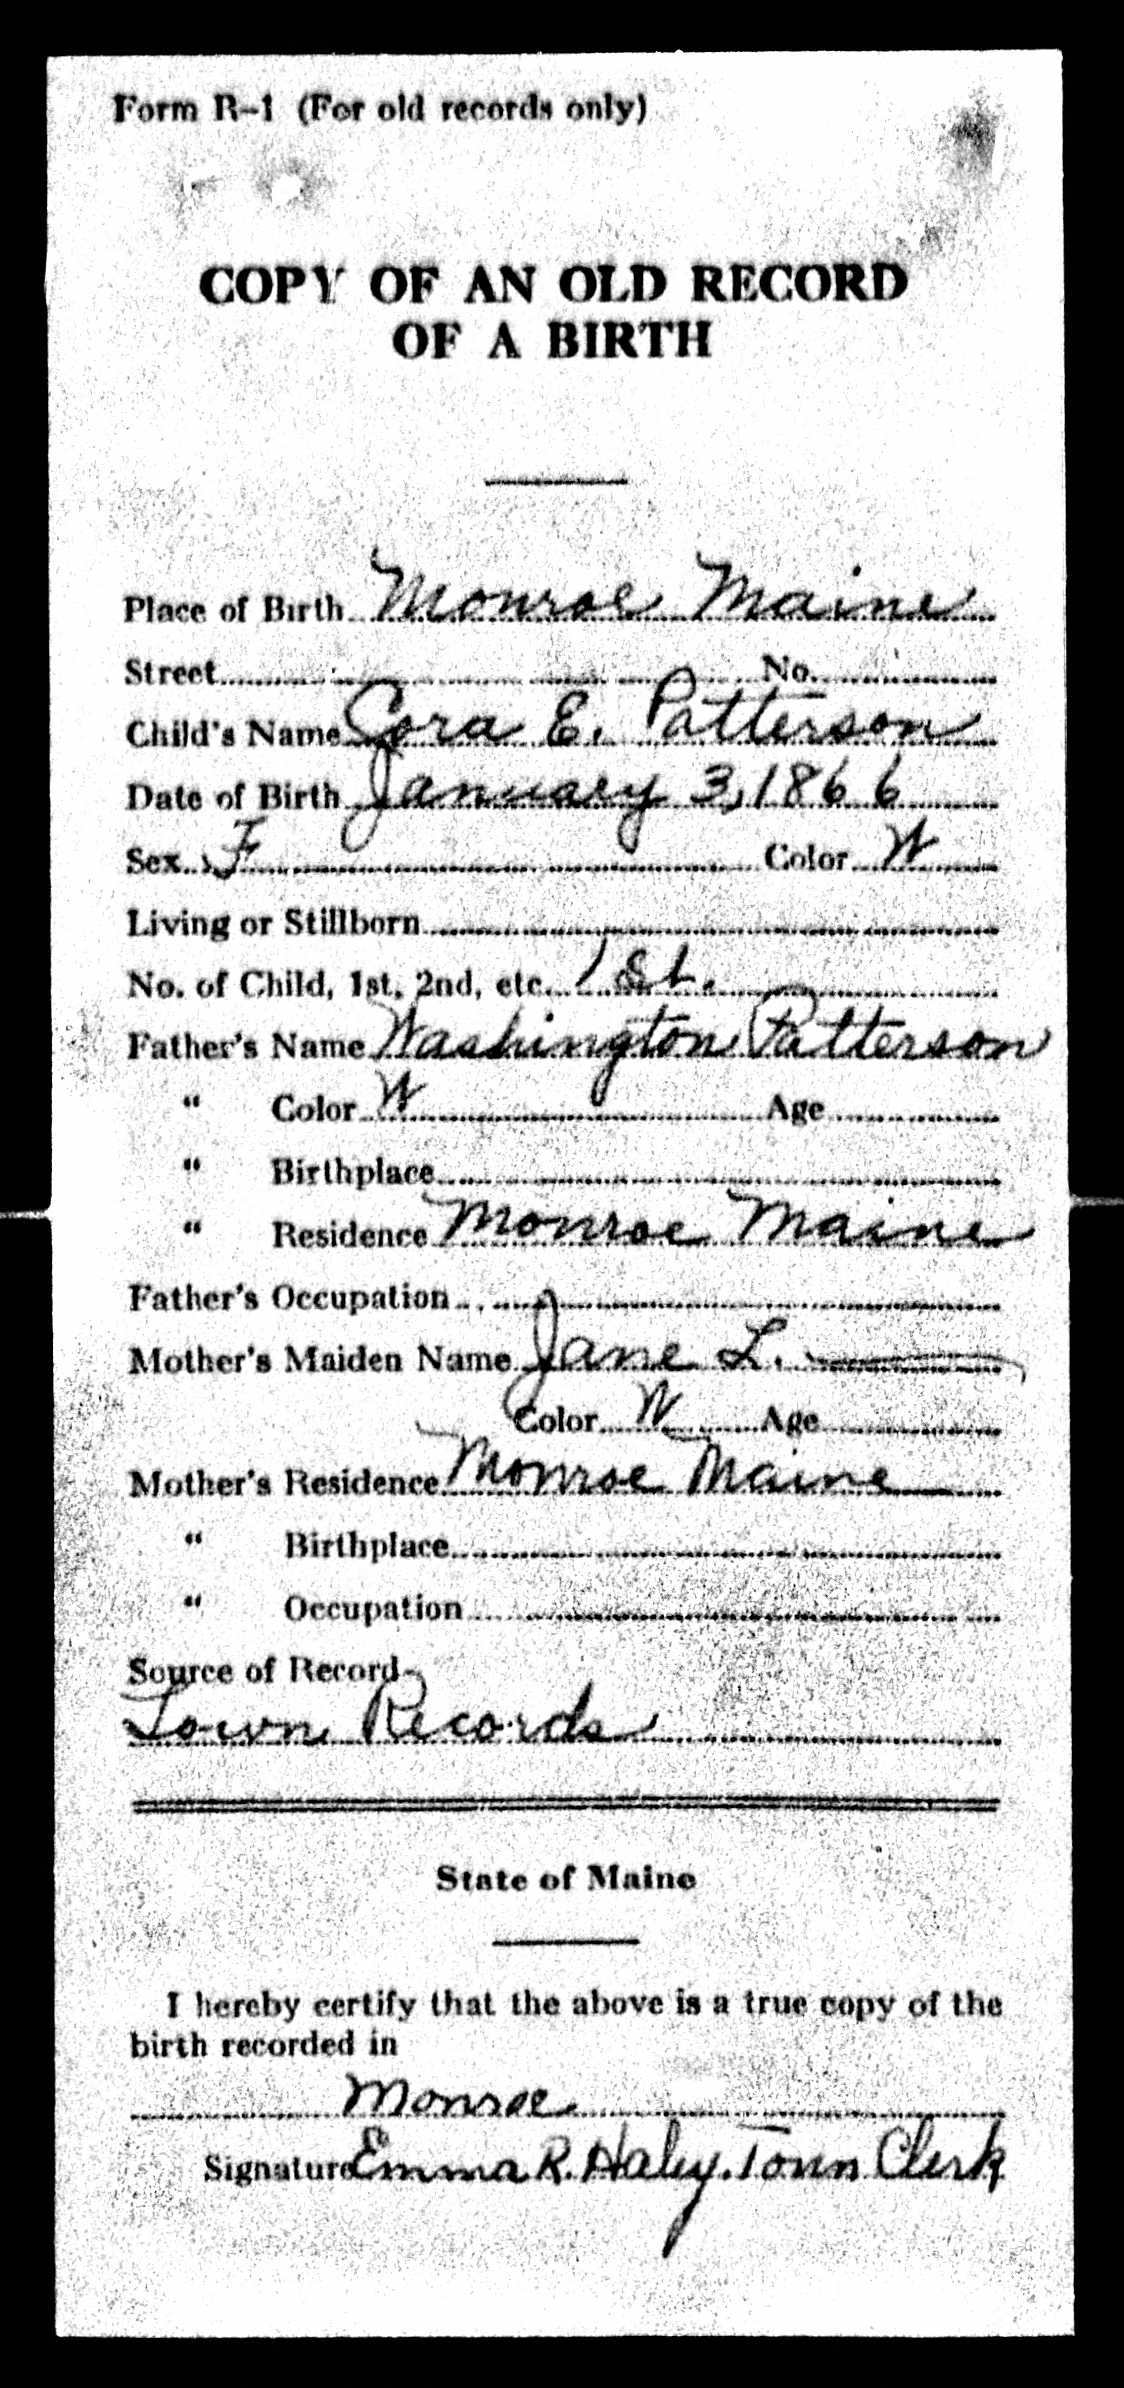 Form R-1 (For old records only)
COPY OF AN OLD RECORD
OF A BIRTH
Place of Birth Monroe Maine
Street No.
Child's Name Cora E. Patterson
Date of Birth January 3, 1866
Sex F Color W
Living or Stillborn
No. of Child, 1st, 2nd, etc. 1st.
Father's Name Washington Patterson
" Color W Age
" Birthplace
" Residence Monroe Maine
Father's Occupation
Mother's Maiden Name Jane L.
Color W Age
Mother's Residence Monroe Maine
" Birthplace
" Occupation
Source of Record
Town Records
State of Maine
I hereby certify that the above is a true copy of the
birth recorded in
Monroe
Signature Emma R. Haley. Town Clerk